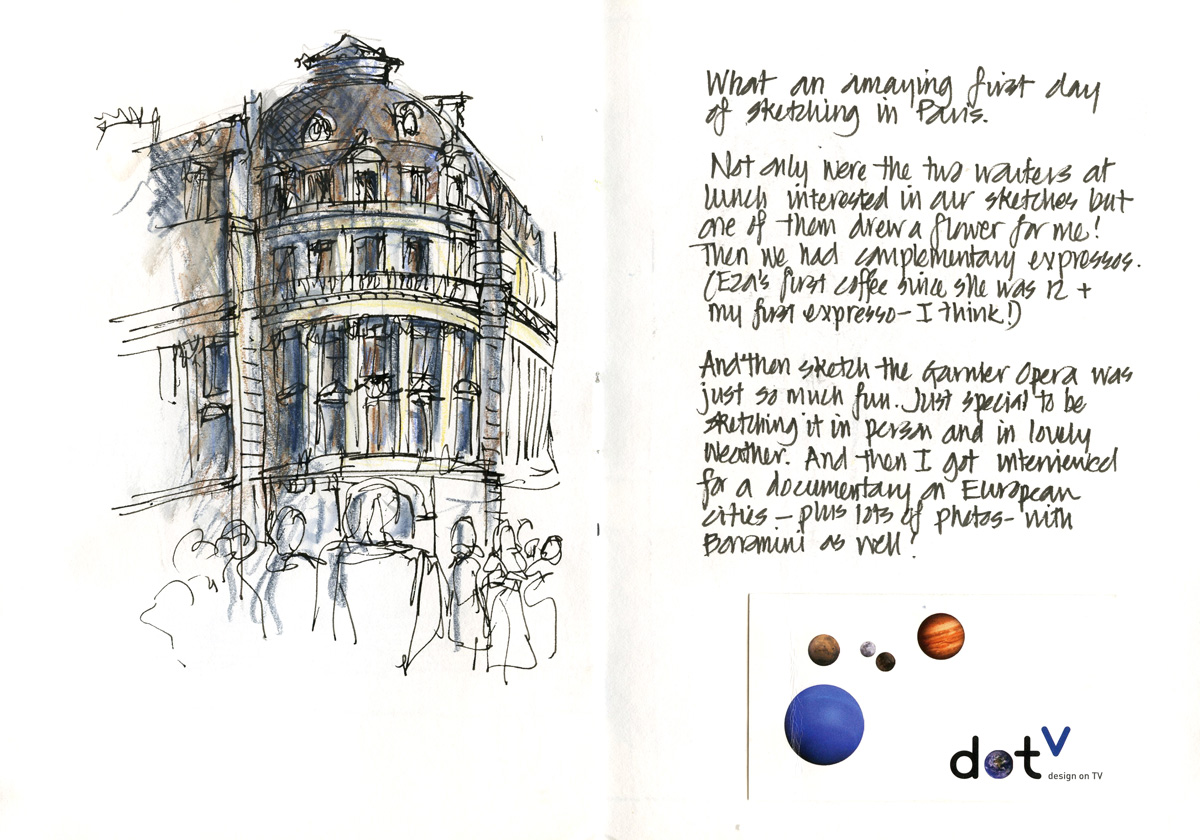 What an amazing first day
of sketching in Paris.
Not only were the two waiters at
lunch interested in our sketches but
one of them drew a flower for me!
Then we had complementary expressos.
(Eza's first coffee since she was 12 +
my first expresso - I think!)
And then sketch the Garnier Opera was
just so much fun. Just special to be
sketching it in person and in lovely
weather. And then I got interviewed
for a documentary on European
cities - plus lots of photos - with
Baramini as well!
dotv
design on TV